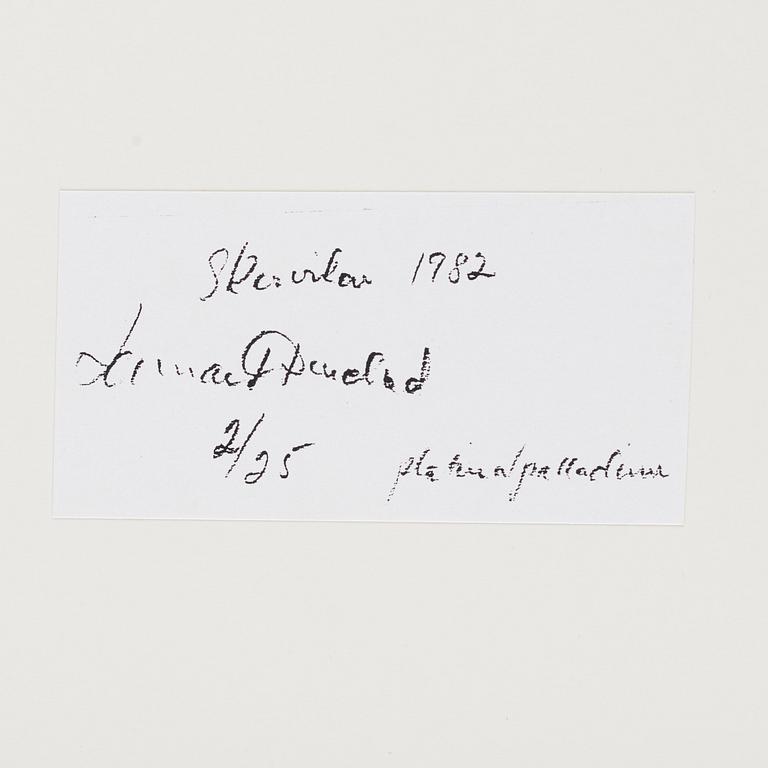 Skarvilan 1982
Lennart Durehed
2/25 platina/palladium